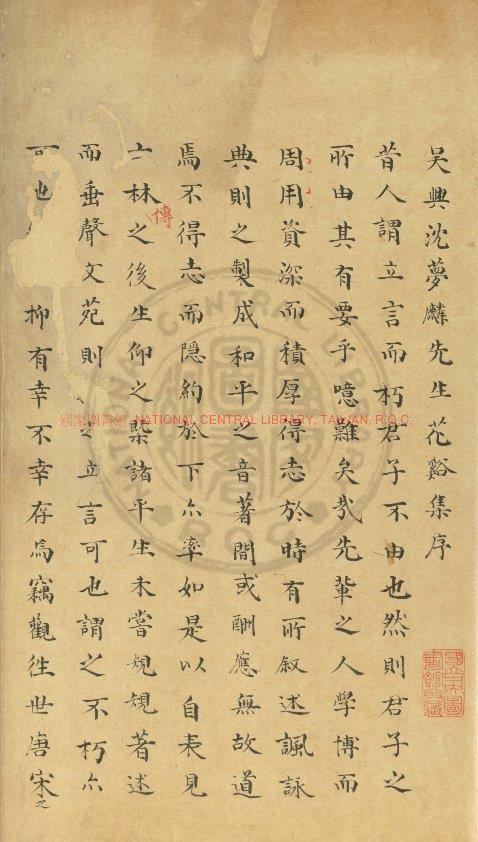 吳興沈夢麟先生花谿集序
昔人謂立言而朽君子不由也然則君子之
所由其有要乎噫難矣哉先軰之人學博而
周用資深而積厚得志於時有所叙述諷詠
典則之製成和平之音著間或酬應無故道
焉不得志而隱約於下亦率如是以自表見
士林之後生仰之槩諸平生未嘗規規著述
傳
而垂聲文苑則之立言可也謂之不朽亦
可也抑有幸不幸存焉竊觀徃世唐宋之
國家圖書館 NATIONAL CENTRAL LIBRARY, TAIWAN, R.O.C
NATIONAL CENTRAL LIBRARY